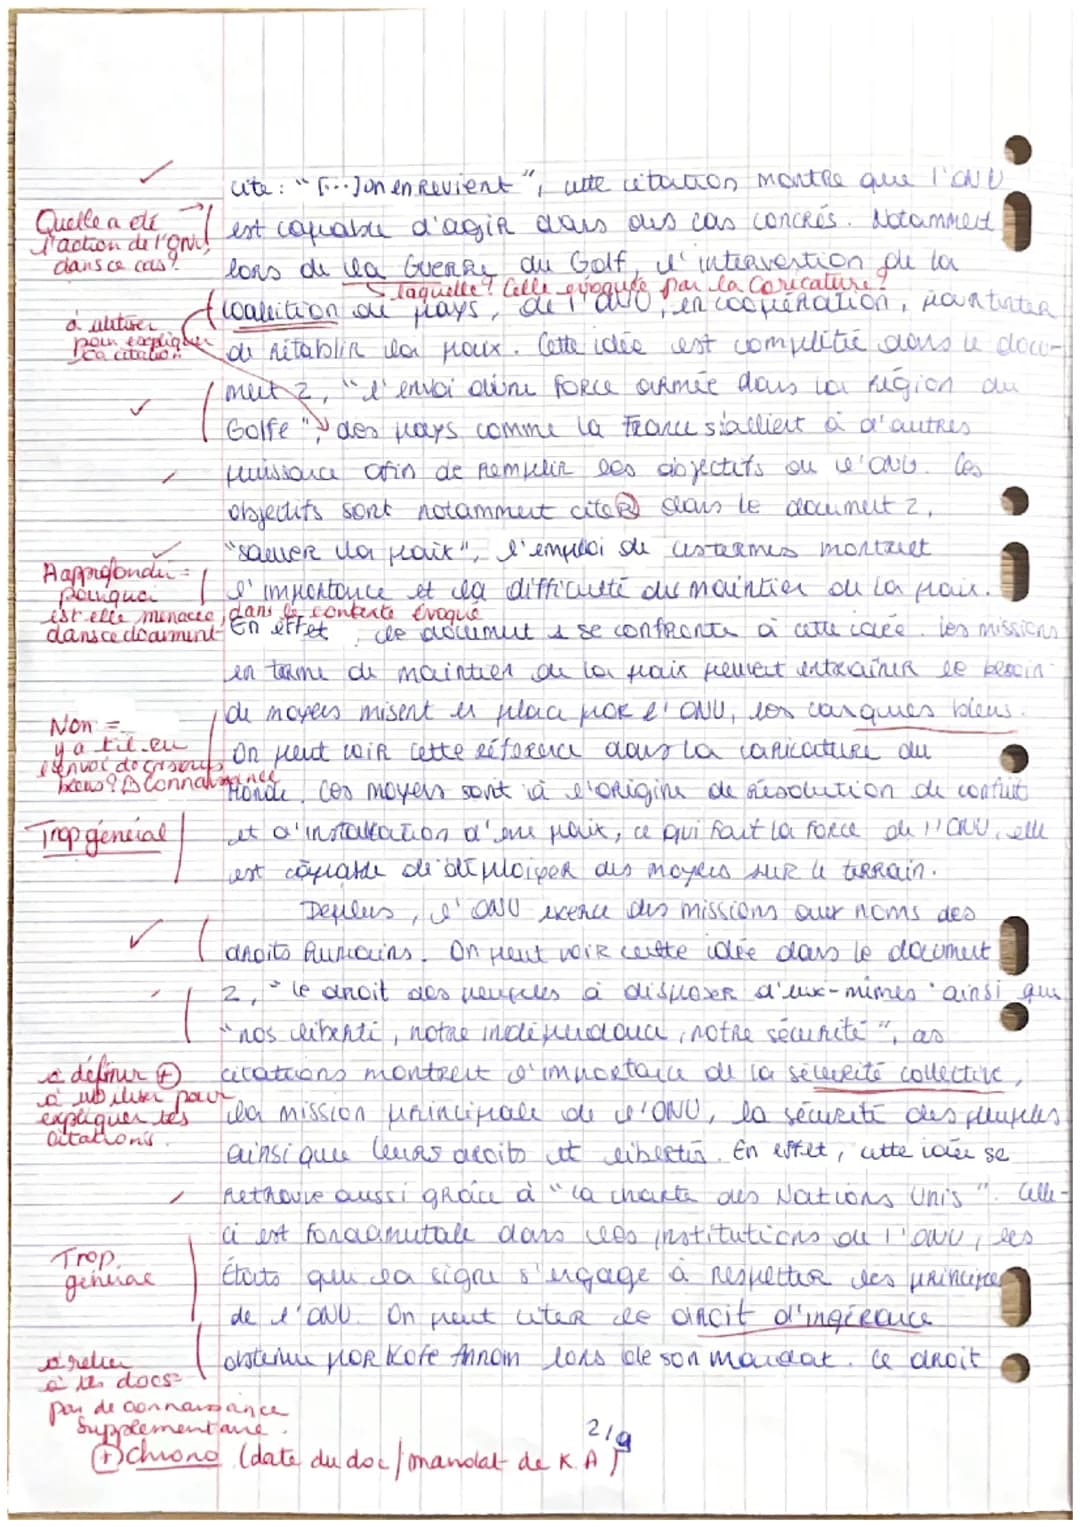 cite : "[...] on en Revient", cette citation montre que l'ONU
Quelle a été
l'action de l'ONU
dans ce cas ?
est capable d'agir dans des cas concrés. Notamment
lors de la Guerre du Golf, l'intervention de la
laquelle ? Celle évoquée par la Caricature ?
coalition de pays, de l'ONU, en coopération, pour tenter
à utiliser
pour expliquer
la citation
de rétablir la paix. Cette idée est complétée dans le docu-
ment 2, "l'envoi d'une force armée dans la région du
Golfe", des pays comme la France s'allient à d'autres
puissance afin de remplir les objectifs de l'ONU. Ces
objectifs sont notamment citer dans le document 2,
"sauver la paix", l'emploi de ces termes montrent
A approfondir =
pourquoi
est elle menacée, dans le contexte évoqué
dans ce document
l'importance et la difficulté du maintien de la paix.
En effet, le document 1 se confronte à cette idée. les missions
en terme de maintien de la paix peuvent entrainer le besoin
de moyens misent en place por l'ONU, les casques bleus.
Non =
y a t il eu
l'envoi de casques
bleus ? Connaissance
On peut voir cette réference dans la caricature du
Monde. Ces moyens sont à l'origine de résolution de conflit
Trop général
et d'installation d'une paix, ce qui fait la force de l'ONU, elle
est capable de déploiyer des moyens sur le terrain.
Deplus, l'ONU exerce des missions aux noms des
droits humains. On peut voir cette idée dans le document
2, "le droit des peuples à disposer d'eux-mêmes" ainsi que
"nos liberté, notre indépendance, notre sécurité", ces
à définir +
à utiliser pour
expliquer les
citations.
citations montrent l'importance de la sécurité collective,
la mission principale de l'ONU, la sécurité des peuples
ainsi que leurs droits et libertés. En effet, cette idée se
retrouve aussi grâce à "la charte des Nations Unis". Celle-
ci est fondamentale dans les institutions de l'ONU, les
Trop
général
États qui la signe s'engage à respecter les principes
de l'ONU. On peut citer le droit d'ingérance
obtenu por Kofe Annam lors de son mandat. Ce droit
à relier
à tes docs =
pas de connaissance
supplémentaire.
+ chrono (date du doc / mandat de K.A)
2/9